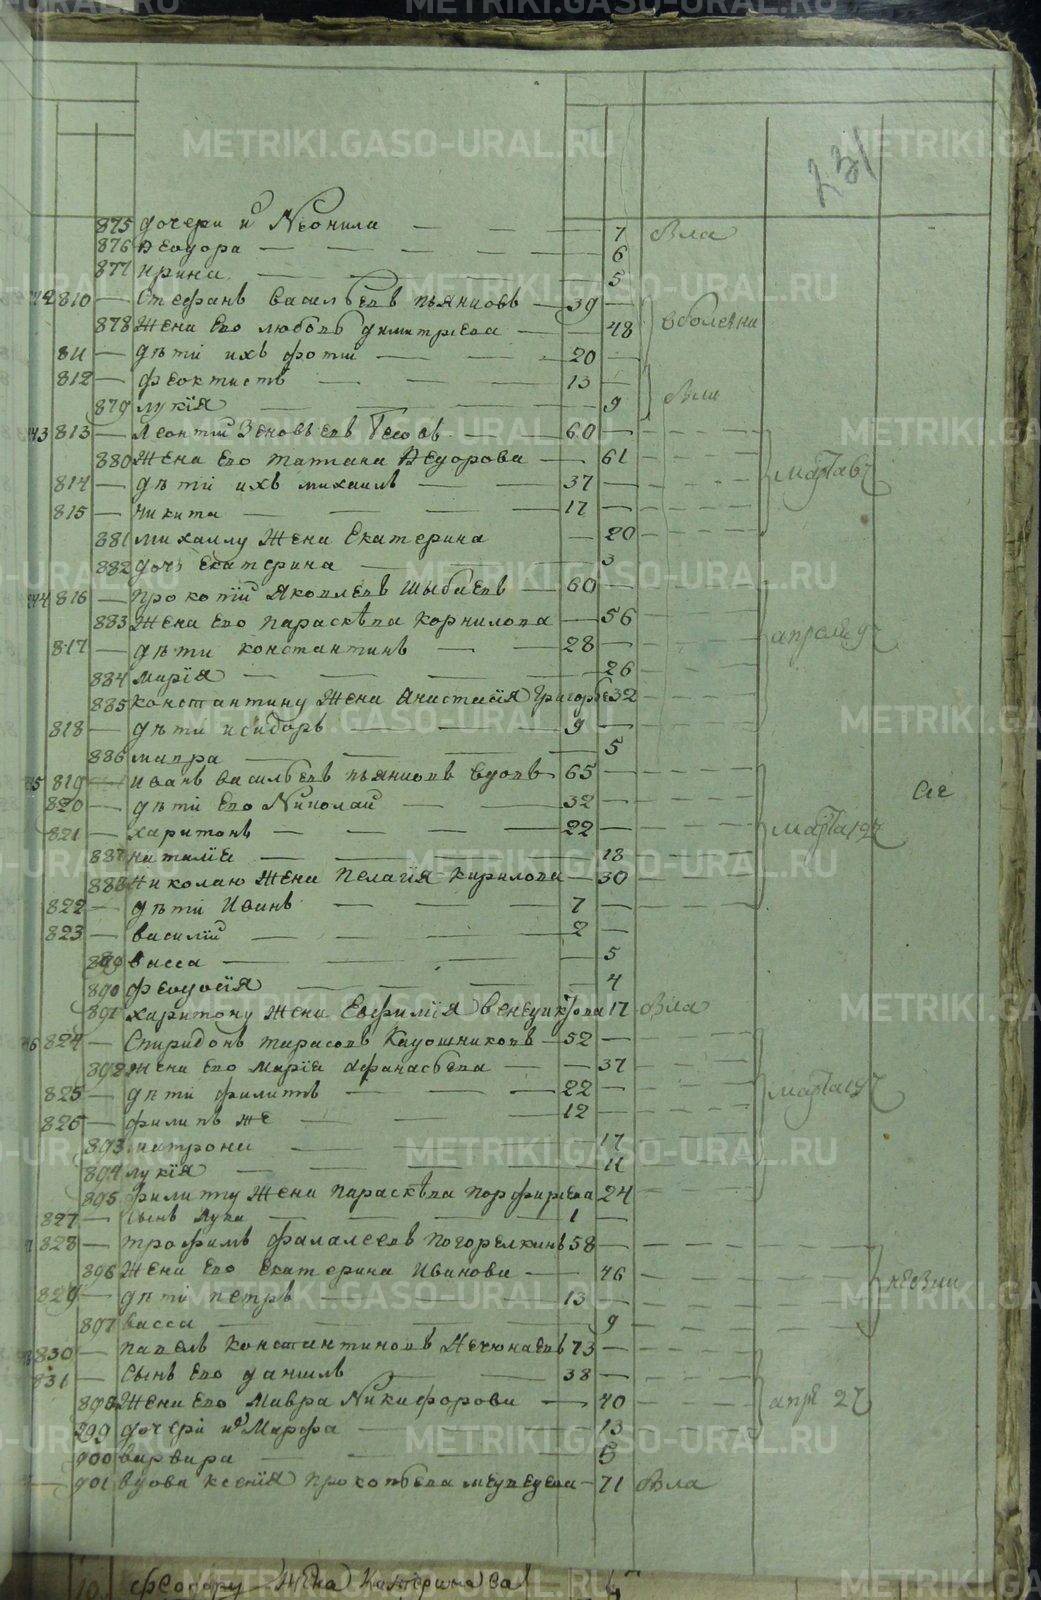 231
875 дочери их Неонила — 7 Вла
876 Ѳеодора — 6
877 Ирина — 5
810 — Стефанъ Васильевъ Пьянковъ — 39
878 Жена ево Любовь Димитриева — 48 вболезни
811 — дѣти ихъ Фоти — 20 —
812 — Феоктистъ — 13 —
879 Лукія — 9
813 — Леонтий Зеновьевъ — 60 —
880 Жена ево Татиана Ѳедорова — 61
814 — дѣти ихъ Михаилъ — 37 — марта 6
815 — Никита — 17 —
881 Михаилу Жена Екатерина — 20
882 дочь Екатерина — 3
816 — Прокопій Яковлевъ Шыбаевъ — 60 —
883 Жена ево Параскѣва Корнилова — 56
817 — дѣти Константинъ — 28 — апреля 9
884 Марія — 26
885 Константину Жена Анастасія Григорье 32
818 — дѣти Исидоръ — 9 —
886 Мавра — 5
819 — Иванъ Васильевъ Пьянковъ вдовъ 65 —
820 — дѣти ево Николай — 32 —
821 — Харитонъ — 22 — марта 19
887 Наталіа — 18
888 Николаю Жена Пелагія Кирилова — 30
822 — дѣти Иванъ — 7 —
823 — Василій — 2 —
889 Васса — 5
890 Феодосія — 4
891 Харитону Жена Евфимія Венедиктова 17 Вла
824 — Спиридонъ Тарасовъ Кадошниковъ — 52 —
892 Жена ево Марія Афанасьева — 37
825 — дѣти Филиппъ — 22 — марта 19
826 — Филипъ же — 12
893 Матрона — 17
894 Лукія — 11
895 Филиппу Жена Параскѣва Порфирьева 24
827 — сынъ Лука — 1 —
828 — Трофимъ Фалалеевъ Погорелкинъ 58 —
896 Жена ево Екатерина Иванова — 46
829 — дѣти Петръ — 13 —
897 Васса — 9
830 — Павелъ Константиновъ 73 —
831 — Сынъ ево Даниилъ — 38 —
898 Жена ево Мавра Никифорова — 40 апре 27
899 дочери их Марфа — 13
900 Варвара — 5
901 вдова Ксенія Прокопьева Медведева — 71 Вла
Феодору Жена Катерина
METRIKI.GASO-URAL.RU